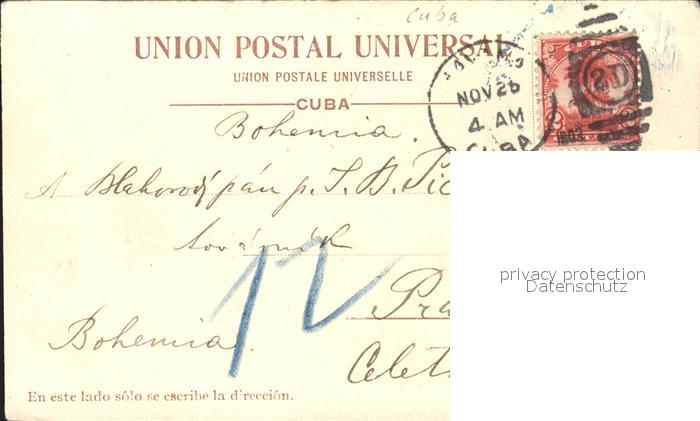 Cuba
UNION POSTAL UNIVERSAL
UNION POSTALE UNIVERSELLE
CUBA
NOV 26
4 AM
CUBA
2D
Bohemia.
A Blahorodý pán p. J. B.
továrník
Pra
Bohemia.
Celet
12
En este lado sólo se escribe la dirección.
privacy protection
Datenschutz